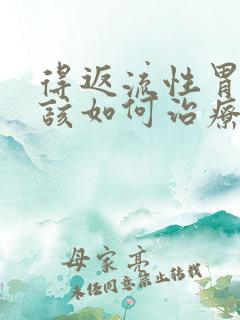 得返流性胃
该如何治疗
母家亮
未经同意禁止转载